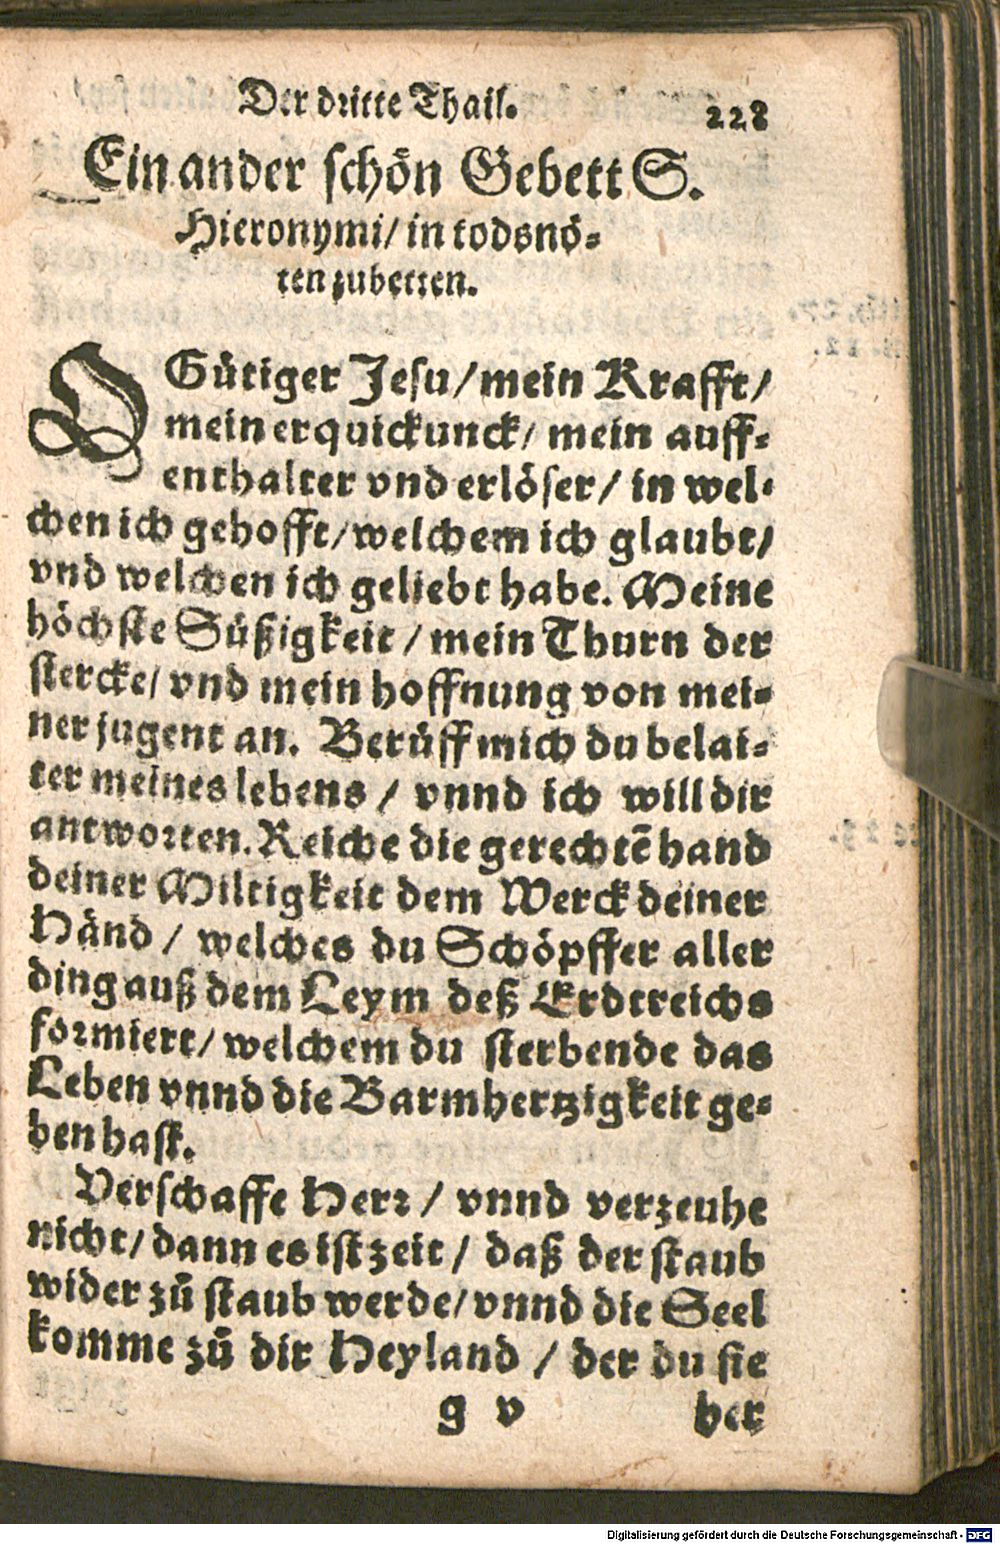 Der dritte Thail. 228
Ein ander schön Gebett S.
Hieronymi/ in todsnö⸗
ten zubetten.
O Gütiger Jesu/ mein Krafft/
mein erquickunck/ mein auff⸗
enthalter vnd erlöser/ in wel⸗
chen ich gehofft/ welchem ich glaubt/
vnd welchen ich geliebt habe. Meine
höchste Süßigkeit/ mein Thurn der
stercke/ vnd mein hoffnung von mei⸗
ner jugent an. Berüff mich du belai⸗
ter meines lebens/ vnnd ich will dir
antworten. Reiche die gerechtē hand
deiner Miltigkeit dem Werck deiner
Händ/ welches du Schöpffer aller
ding auß dem Leym deß Erdtreichs
formiert/ welchem du sterbende das
Leben vnnd die Barmhertzigkeit ge⸗
ben hast.
Verschaffe Herr/ vnnd verzeuhe
nicht/ dann es ist zeit/ daß der staub
wider zů staub werde/ vnnd die Seel
komme zů dir Heyland/ der du sie
g v her
Digitalisierung gefördert durch die Deutsche Forschungsgemeinschaft - DFG